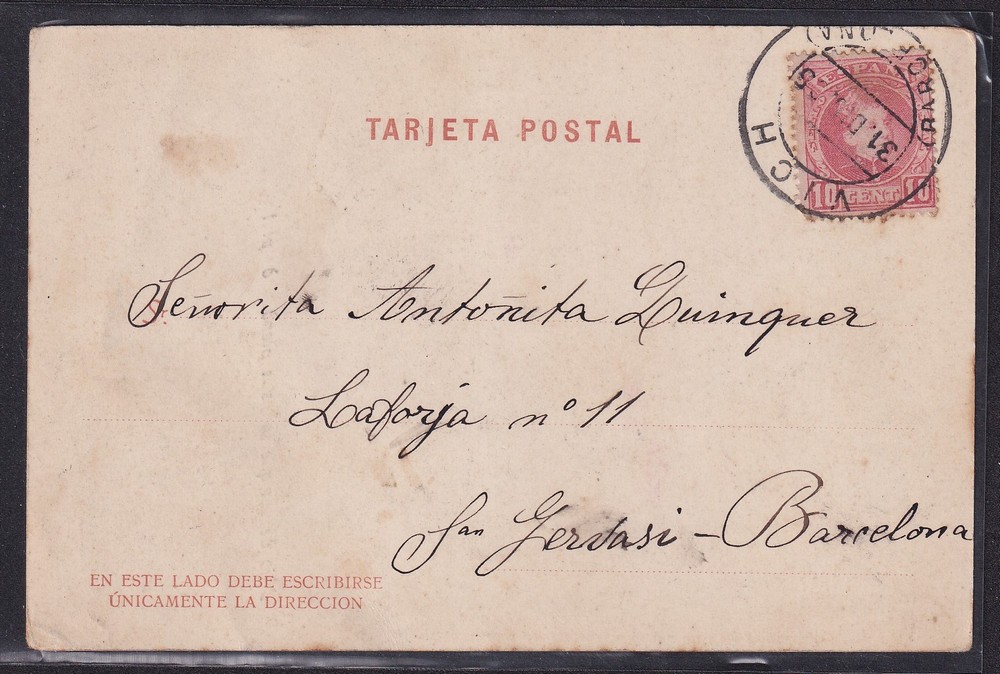 TARJETA POSTAL
VICH
(BARCELONA)
31.D
S
ESPAÑA
10 CENT 10
Señorita Antoñita Quinquer
Laforja nº 11
San Gervasi - Barcelona
EN ESTE LADO DEBE ESCRIBIRSE
ÚNICAMENTE LA DIRECCION